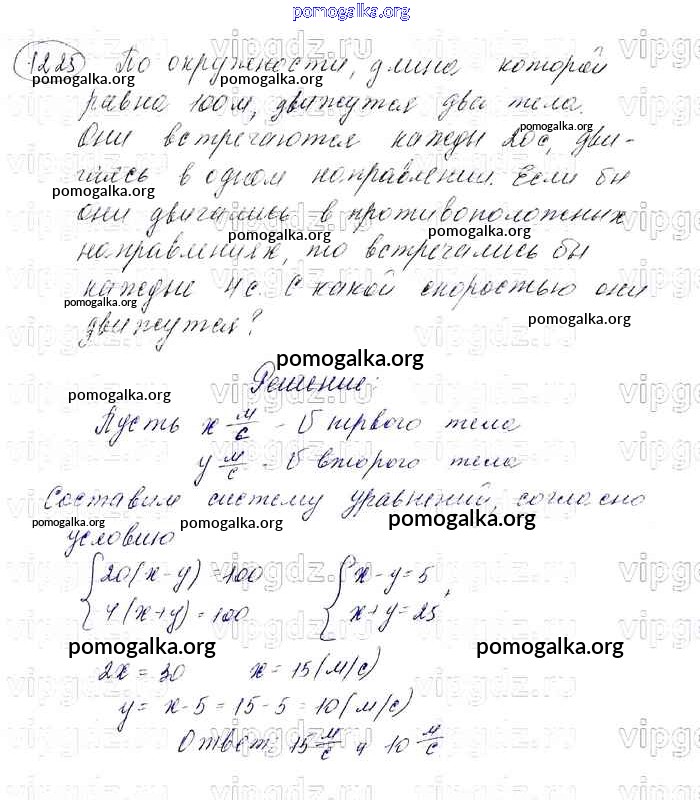 pomogalka.org
1225 По окружности, длина которой
pomogalka.org
равна 100м, движутся два тела.
Они встречаются кажды 20с, дви-
pomogalka.org
гаясь в одном направлении. Если бы
pomogalka.org
они двигались в противоположных
pomogalka.org pomogalka.org
направлениях, то встречались бы
каждые 4с. С какой скоростью они
pomogalka.org
движутся?
pomogalka.org
pomogalka.org
Решение:
pomogalka.org
Пусть x м/с - v первого тела
y м/с - v второго тела
Составим систему уравнений, согласно
pomogalka.org pomogalka.org pomogalka.org
условию
{20(x-y)=100 {x-y=5,
{4(x+y)=100 {x+y=25
pomogalka.org pomogalka.org
2x=30 x=15(м/с)
y=x-5=15-5=10(м/с)
Ответ: 15 м/с и 10 м/с